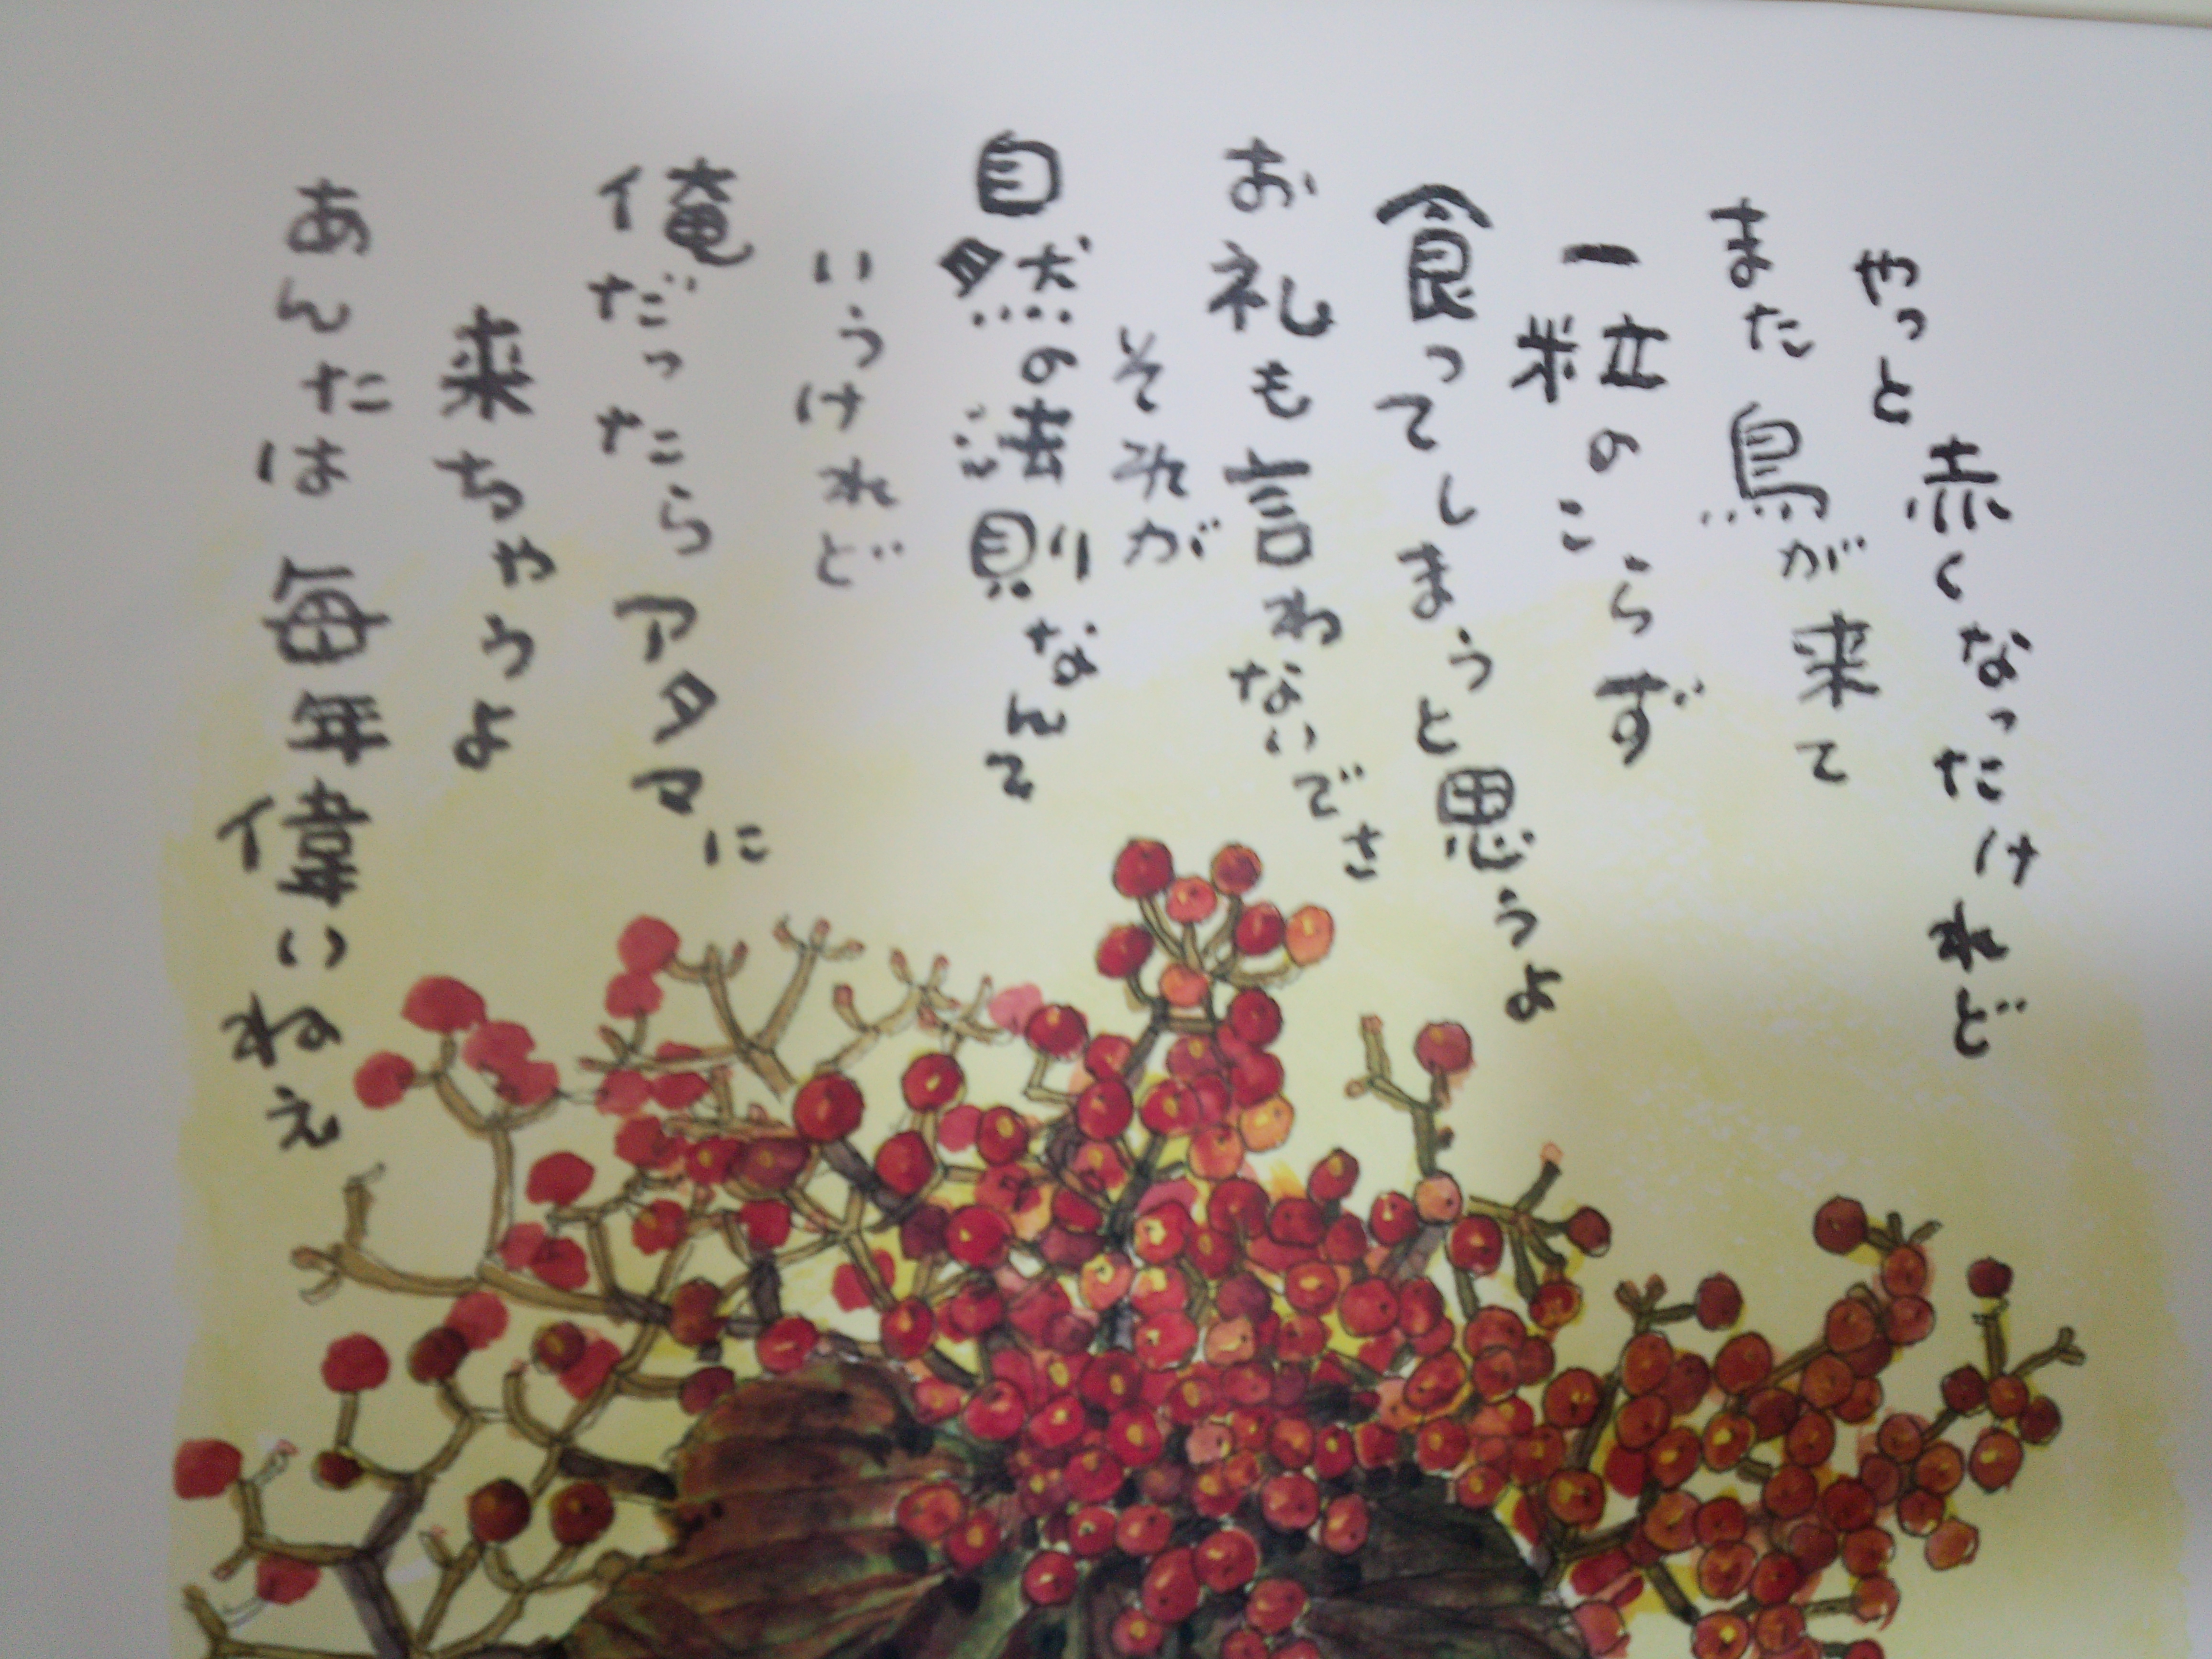 やっと赤くなったけれど
また鳥が来て
一粒のこらず
食ってしまうと思うよ
お礼も言わないでさ
そそれが
自然の法則なんて
いうけれど
俺だったらアタマに
来ちゃうよ
あんたは毎年偉いねえ